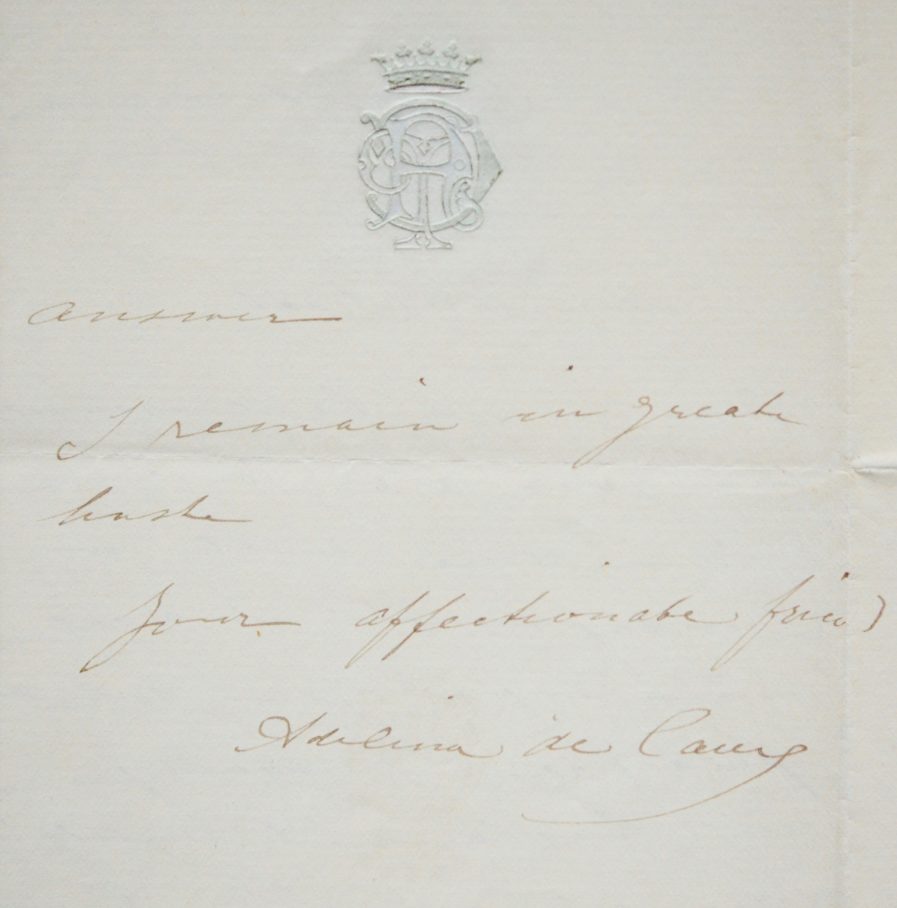 answer
I remain in great
haste
Your affectionate friend
Adelina de Caux